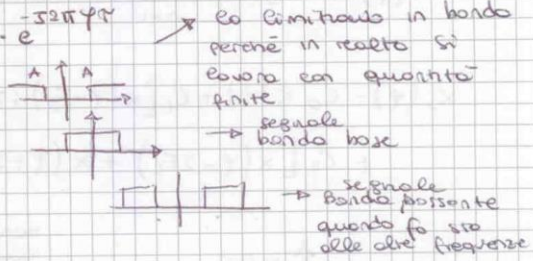 e^-J2πφτ
lo limitiamo in banda
perché in realtà si
lavora con quantità
finite
A A
segnale
banda base
segnale
Banda passante
quando fo sta
alle alte frequenze